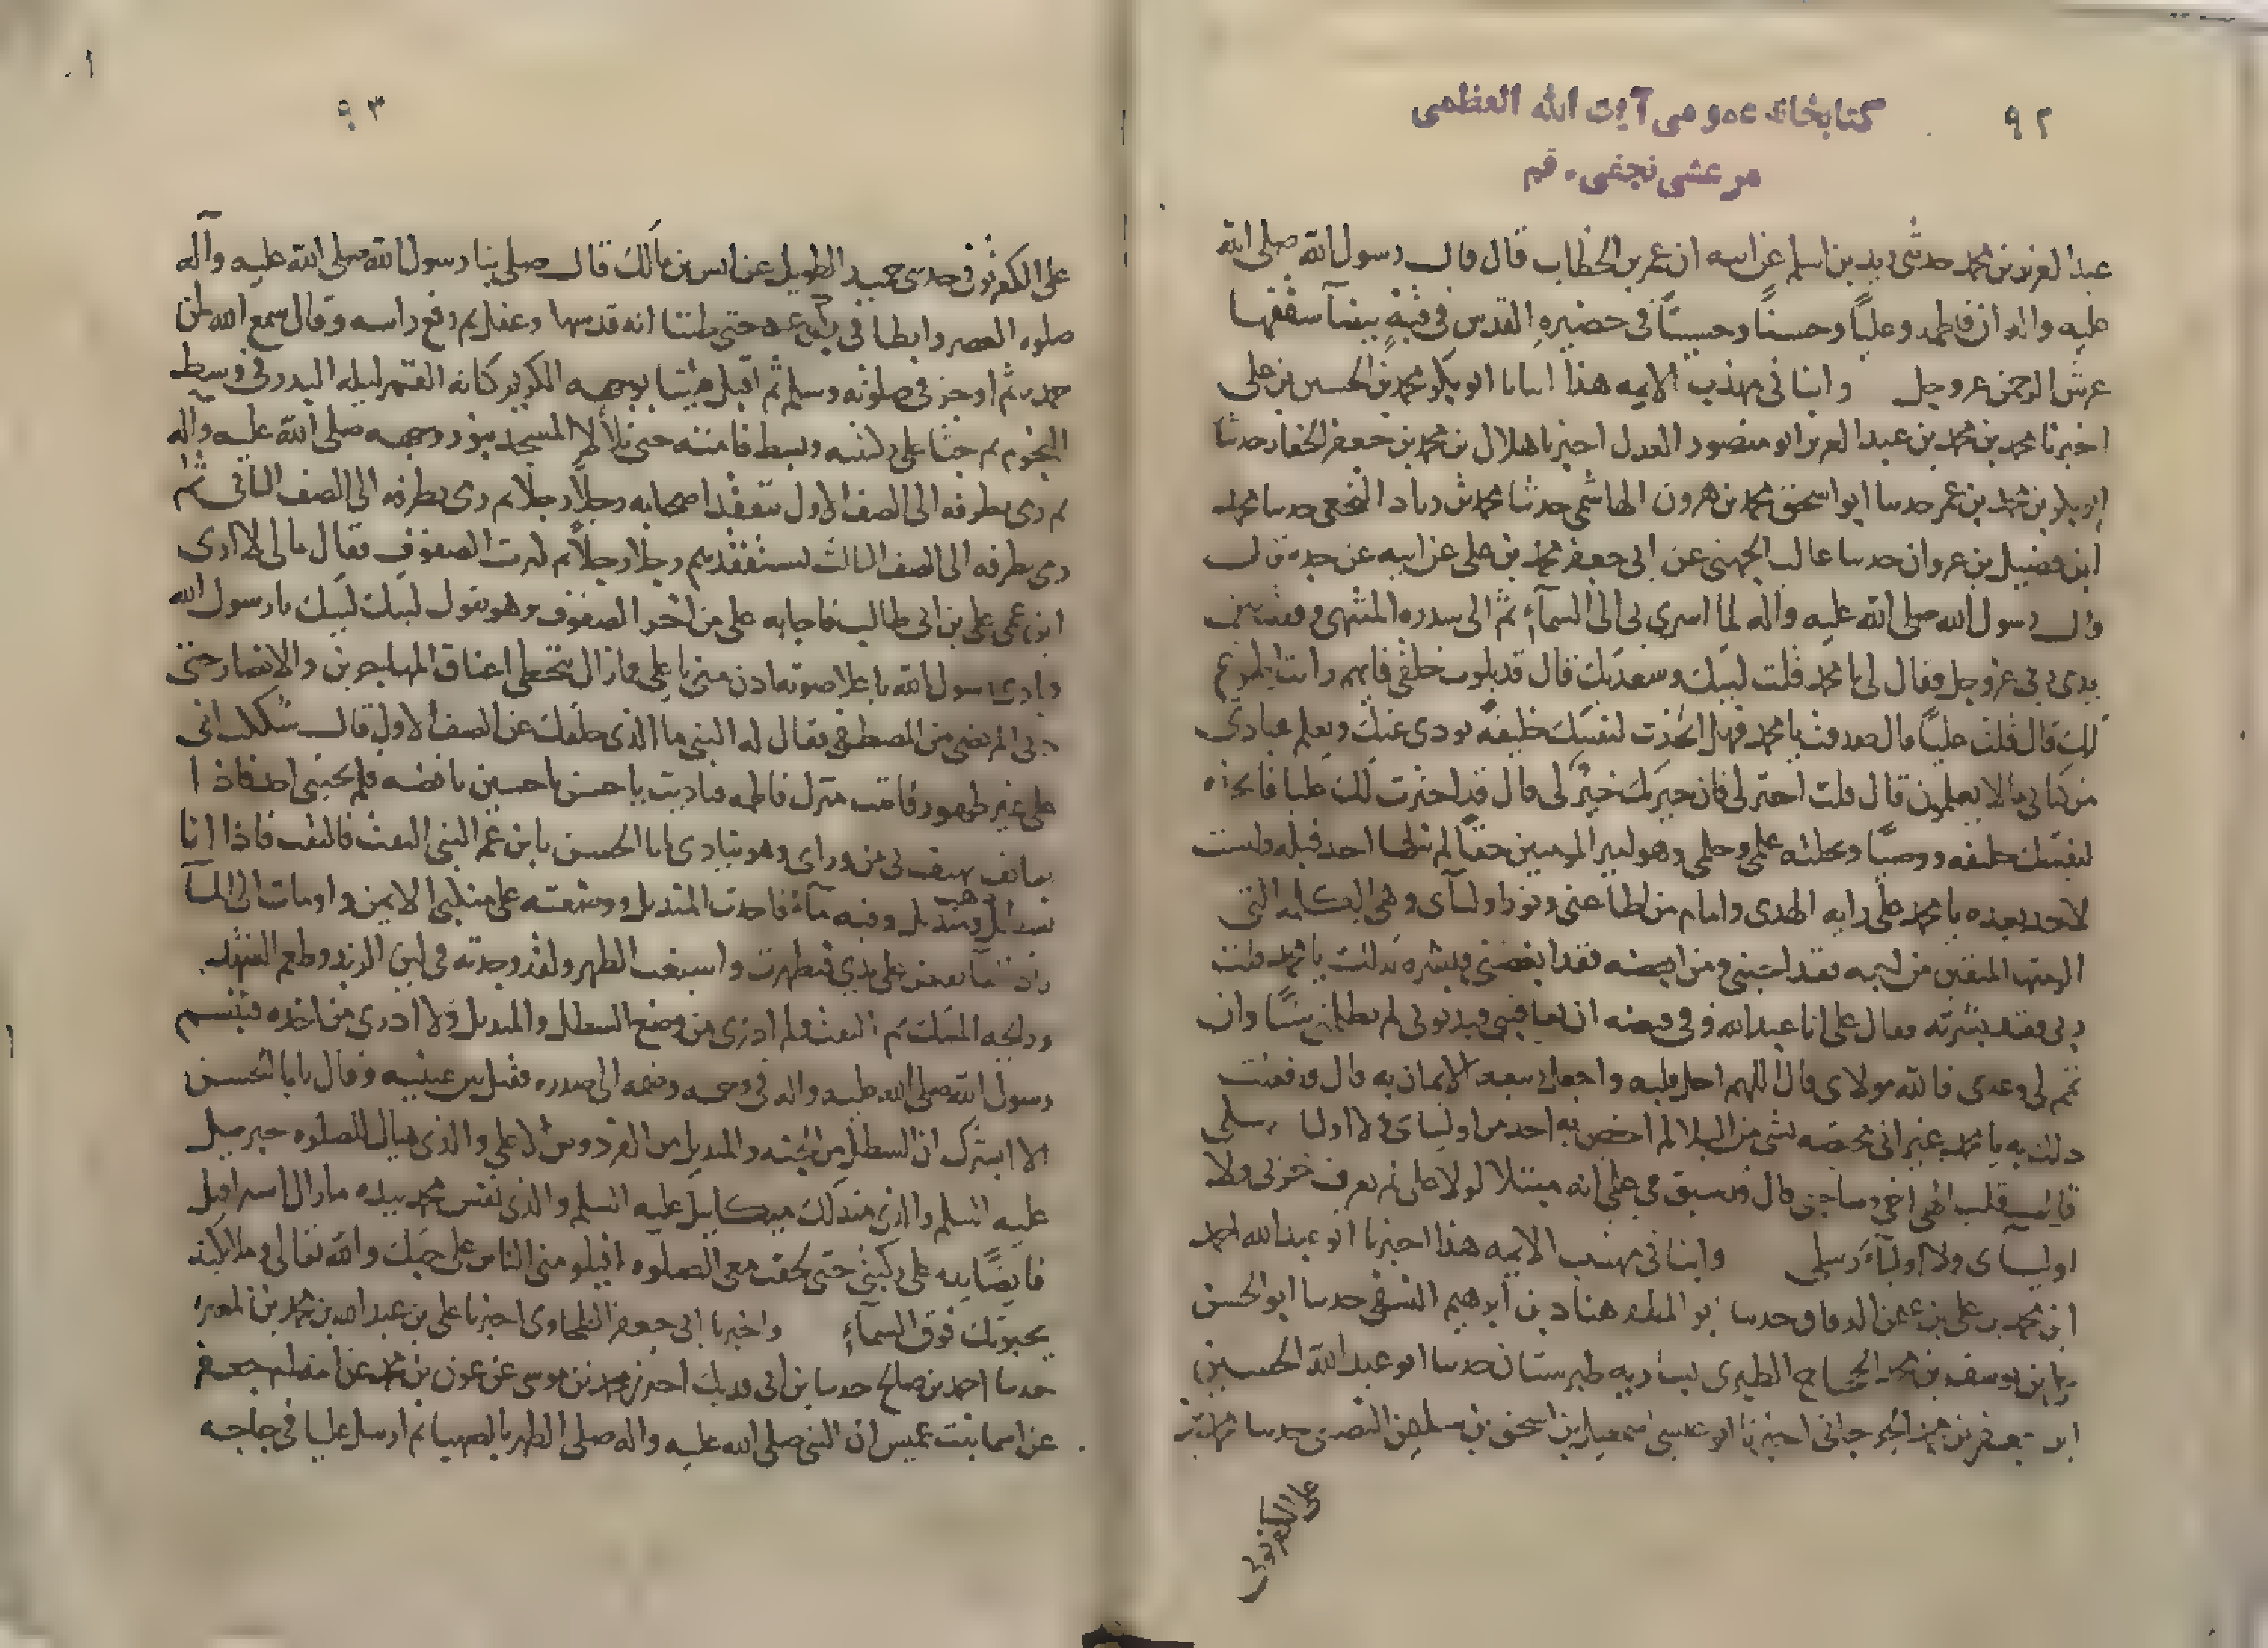 ٩٢
كتابخانه عمومى آيت الله العظمى
مرعشى نجفى - قم
عبد العزيز بن محمد حدثنى زيد بن اسلم عن ابيه ان عمر بن الخطاب قال قال رسول الله صلى الله
عليه واله ان فاطمه وعلياً وحسناً وحسيناً فى حضيره القدس فى قبةٍ بيضآ سقفها
عرش الرحمن عز وجل وانبانى مهذب الايمه هذا انبانا ابو بكر محمد بن الحسين بن على
اخبرنا محمد بن محمد بن عبد العزيز ابو منصور العدل اخبرنا هلال بن محمد بن جعفر الحفار حدثنا
ابو بكر بن محمد بن عمر حدسا ابو اسحق محمد بن هرون الهاشمى حدثنا محمد بن زياد النخعى حدسا محمد
ابن فضيل بن غزوان حدسا غالب الجهنى عن ابى جعفر محمد بن على عن ابيه عن جده قال
قال رسول الله صلى الله عليه واله لما اسرى بى الى السمآءِ ثم الى سدره المنتهى وقفت بين
يدى ربى عز وجل فقال لى يا محمد قلت لبيك وسعديك قال قد بلوت خلقى فايهم رايت اطوع
لك قال قلت عليًا قال صدقت يا محمد فهل اتخذت لنفسك خليفةً يودى عنك ويعلم عبادى
من كتابى ما لا يعلمون قال قلت اختر لى فان خيرتك خيرٌ لى قال قد اخترت لك عليا فاتخذه
لنفسك خليفه ووصيًا ونحلته علمى وحلمى وهو امير المومنين حقًا لم ينلها احد قبله وليست
لاحد بعده يا محمد على رايه الهدى وامام من اطاعنى ونور اوليآى وهى الكلمه التى
الزمتها المتقين من احبه فقد احبنى ومن ابغضه فقد ابغضنى فبشره بذلك يا محمد قلت
ربى فقد بشرته فقال على انا عبد الله وفى قبضته ان يعاقبنى فبذنوبى لم يظلمنى شيئًا وان
تمم لى وعدى فالله مولاى قال اللهم اجل قلبه واجعل ربيعه الايمان به قال قد فعلت
ذلك به يا محمد غير انى مختصه بشى من البلا لم اخص به احد من اوليآى
قال قلت الهى اخى وصاحبى قال قد سبق فى علمى انه مبتلا لولا على لم يعرف حزبى ولا
اوليآى ولا اوليآءُ رسلى وانبانى مهذب الايمه هذا اخبرنا ابو عبد الله احمد
ابن محمد بن على بن الدقاق حدسا ابو المظفر هناد بن ابرهيم النسفى حدسا ابو الحسن
بن يوسف بن محمد الحجاج الطبرى بساريه طبرستان حدسا ابو عبد الله الحسين
ابن جعفر بن محمد الجرجانى اخبرنا ابو عيسى اسمعيل بن اسحق بن سليمن النصرى حدسا محمد بن
على الكفرثوثى
٩٣
على الكفرثوثى حدسى حميد الطويل عن انس بن مالك قال صلى بنا رسول الله صلى الله عليه وآله
صلوه العصر وابطا فى ركوعه حتى ظننا انه قد سها وغفل ثم رفع راسه وقال سمع الله لمن
حمده ثم اوجز فى صلوته وسلم ثم اقبل علينا بوجهه كانه القمر ليله البدر فى وسط
النجوم ثم جثا على ركبتيه وبسط قامته حتى تلألا المسجد بنور وجهه صلى الله عليه وآله
ثم رمى بطرفه الى الصف الاول يتفقد اصحابه رجلاً رجلاً ثم رمى بطرفه الى الصف الثانى ثم
رمى بطرفه الى الصف الثالث يتفقدهم رجلا رجلاً ثم كثرت الصفوف فقال مالى لا ارى
ابن عمى على بن ابى طالب فاجابه على من اخر الصفوف وهو يقول لبيك لبيك يا رسول الله
فنادى رسول الله باعلا صوته ادن منى يا على فما زال يتخطى اعناق المهاجرين والانصار حتى
دنى المرتضى من المصطفى فقال له النبى ما الذى خلفك عن الصف الاول قال شككت انى
على غير طهور فاتيت منزل فاطمه فناديت يا حسن يا حسين يا فضه فلم يجبنى احد فاذا
بهاتف يهتف بى من وراى وهو ينادى ابا الحسن يا بن عم النبى التفت فالتفت فاذا انا
بسطل ذهب وفيه مآءٌ فاخذت المنديل ووضعته على منكبى الايمن واومات الى المآ
فاذا المآ يفيض على يدى فتطهرت واسبغت الطهر ولقد وجدته فى لين الزبد وطعم الشهد
ورايحه المسك ثم التفت فلم ادرى من وضع السطل والمنديل ولا ادرى من اخذه فتبسم
رسول الله صلى الله عليه واله فى وجهه وضمه الى صدره فقبل بين عينيه وقال يابا الحسن
الا ابشرك ان السطل من الجنه والمنديل من الفردوس الاعلى والذى هياك للصلوه جبرييل
عليه السلم والذى مندلك ميكاييل عليه السلم والذى نفس محمد بيده مازال اسرافيل
قابضًا بيده على ركبتى حتى لحقت معى الصلوه افيلومنى الناس على حبك والله تعالى وملائكته
يحبونك فوق السمآءِ واخبرنا ابى جعفر الطحاوى اخبرنا على بن عبد الله بن محمد بن المغيره
حدسا احمد بن صالح حدسا بن ابى فديك اخبرنى محمد بن موسى عن عون بن محمد عن امه ام جعفر
عن اسما بنت عميس ان النبى صلى الله عليه واله صلى الظهر بالصهبا ثم ارسل عليا فى حاجه